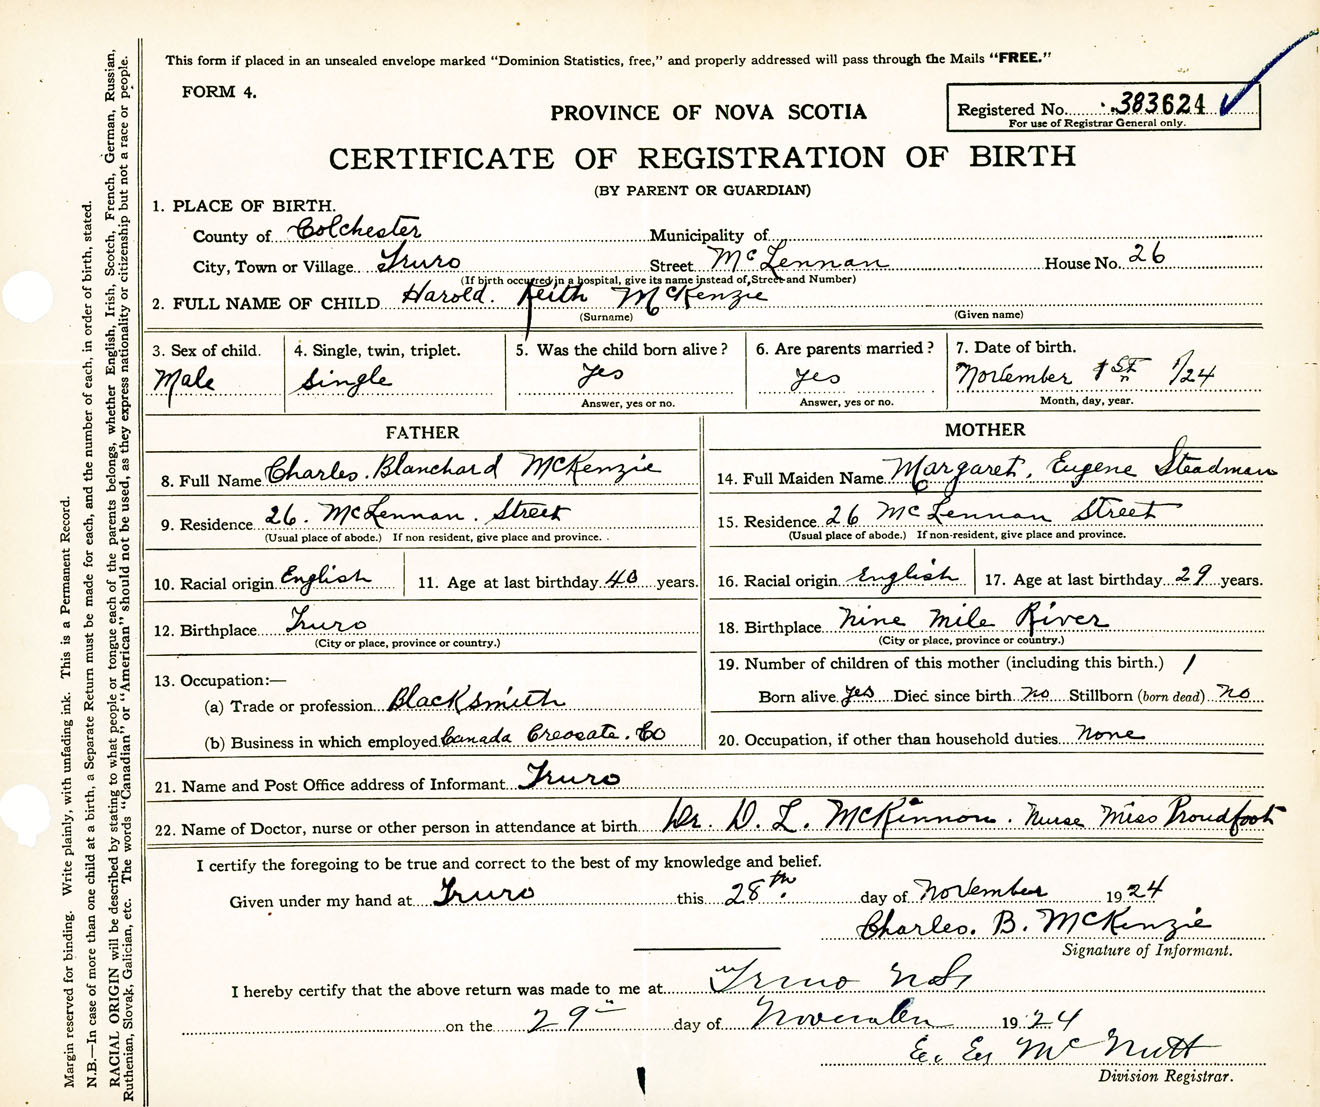 This form if placed in an unsealed envelope marked "Dominion Statistics, free," and properly addressed will pass through the Mails "FREE."
FORM 4.
PROVINCE OF NOVA SCOTIA
Registered No. 383624
For use of Registrar General only.
CERTIFICATE OF REGISTRATION OF BIRTH
(BY PARENT OR GUARDIAN)
1. PLACE OF BIRTH.
County of Colchester Municipality of
City, Town or Village Truro Street McLennan House No. 26
(If birth occurred in a hospital, give its name instead of Street and Number)
2. FULL NAME OF CHILD Harold. Keith McKenzie
(Surname) (Given name)
3. Sex of child. 4. Single, twin, triplet. 5. Was the child born alive? 6. Are parents married? 7. Date of birth.
Male Single Yes Yes November 1st 1/24
Answer, yes or no. Answer, yes or no. Month, day, year.
FATHER MOTHER
8. Full Name Charles. Blanchard McKenzie 14. Full Maiden Name Margaret. Eugene Steadman
9. Residence 26. McLennan. Street 15. Residence 26 McLennan Street
(Usual place of abode.) If non resident, give place and province. (Usual place of abode.) If non-resident, give place and province.
10. Racial origin English 11. Age at last birthday 40 years. 16. Racial origin English 17. Age at last birthday 29 years.
12. Birthplace Truro 18. Birthplace Nine Mile River
(City or place, province or country.) (City or place, province or country.)
13. Occupation:— 19. Number of children of this mother (including this birth.) 1
(a) Trade or profession Blacksmith Born alive yes Died since birth no Stillborn (born dead) no
(b) Business in which employed Canada Creosate. Co 20. Occupation, if other than household duties none
21. Name and Post Office address of Informant Truro
22. Name of Doctor, nurse or other person in attendance at birth Dr. D. L. McKinnon. Nurse Miss Proudfoot
I certify the foregoing to be true and correct to the best of my knowledge and belief.
Given under my hand at Truro this 28th. day of November 1924
Charles. B. McKenzie
Signature of Informant.
I hereby certify that the above return was made to me at Truro N.S.
on the 29th day of November 1924
McNutt
Division Registrar.
Margin reserved for binding. Write plainly, with unfading ink. This is a Permanent Record.
N.B.—In case of more than one child at a birth, a Separate Return must be made for each, and the number of each, in order of birth, stated.
RACIAL ORIGIN will be described by stating to what people or tongue each of the parents belongs, whether English, Irish, Scotch, French, German, Russian,
Ruthenian, Slovak, Galician, etc. The words "Canadian" or "American" should not be used, as they express nationality or citizenship but not a race or people.